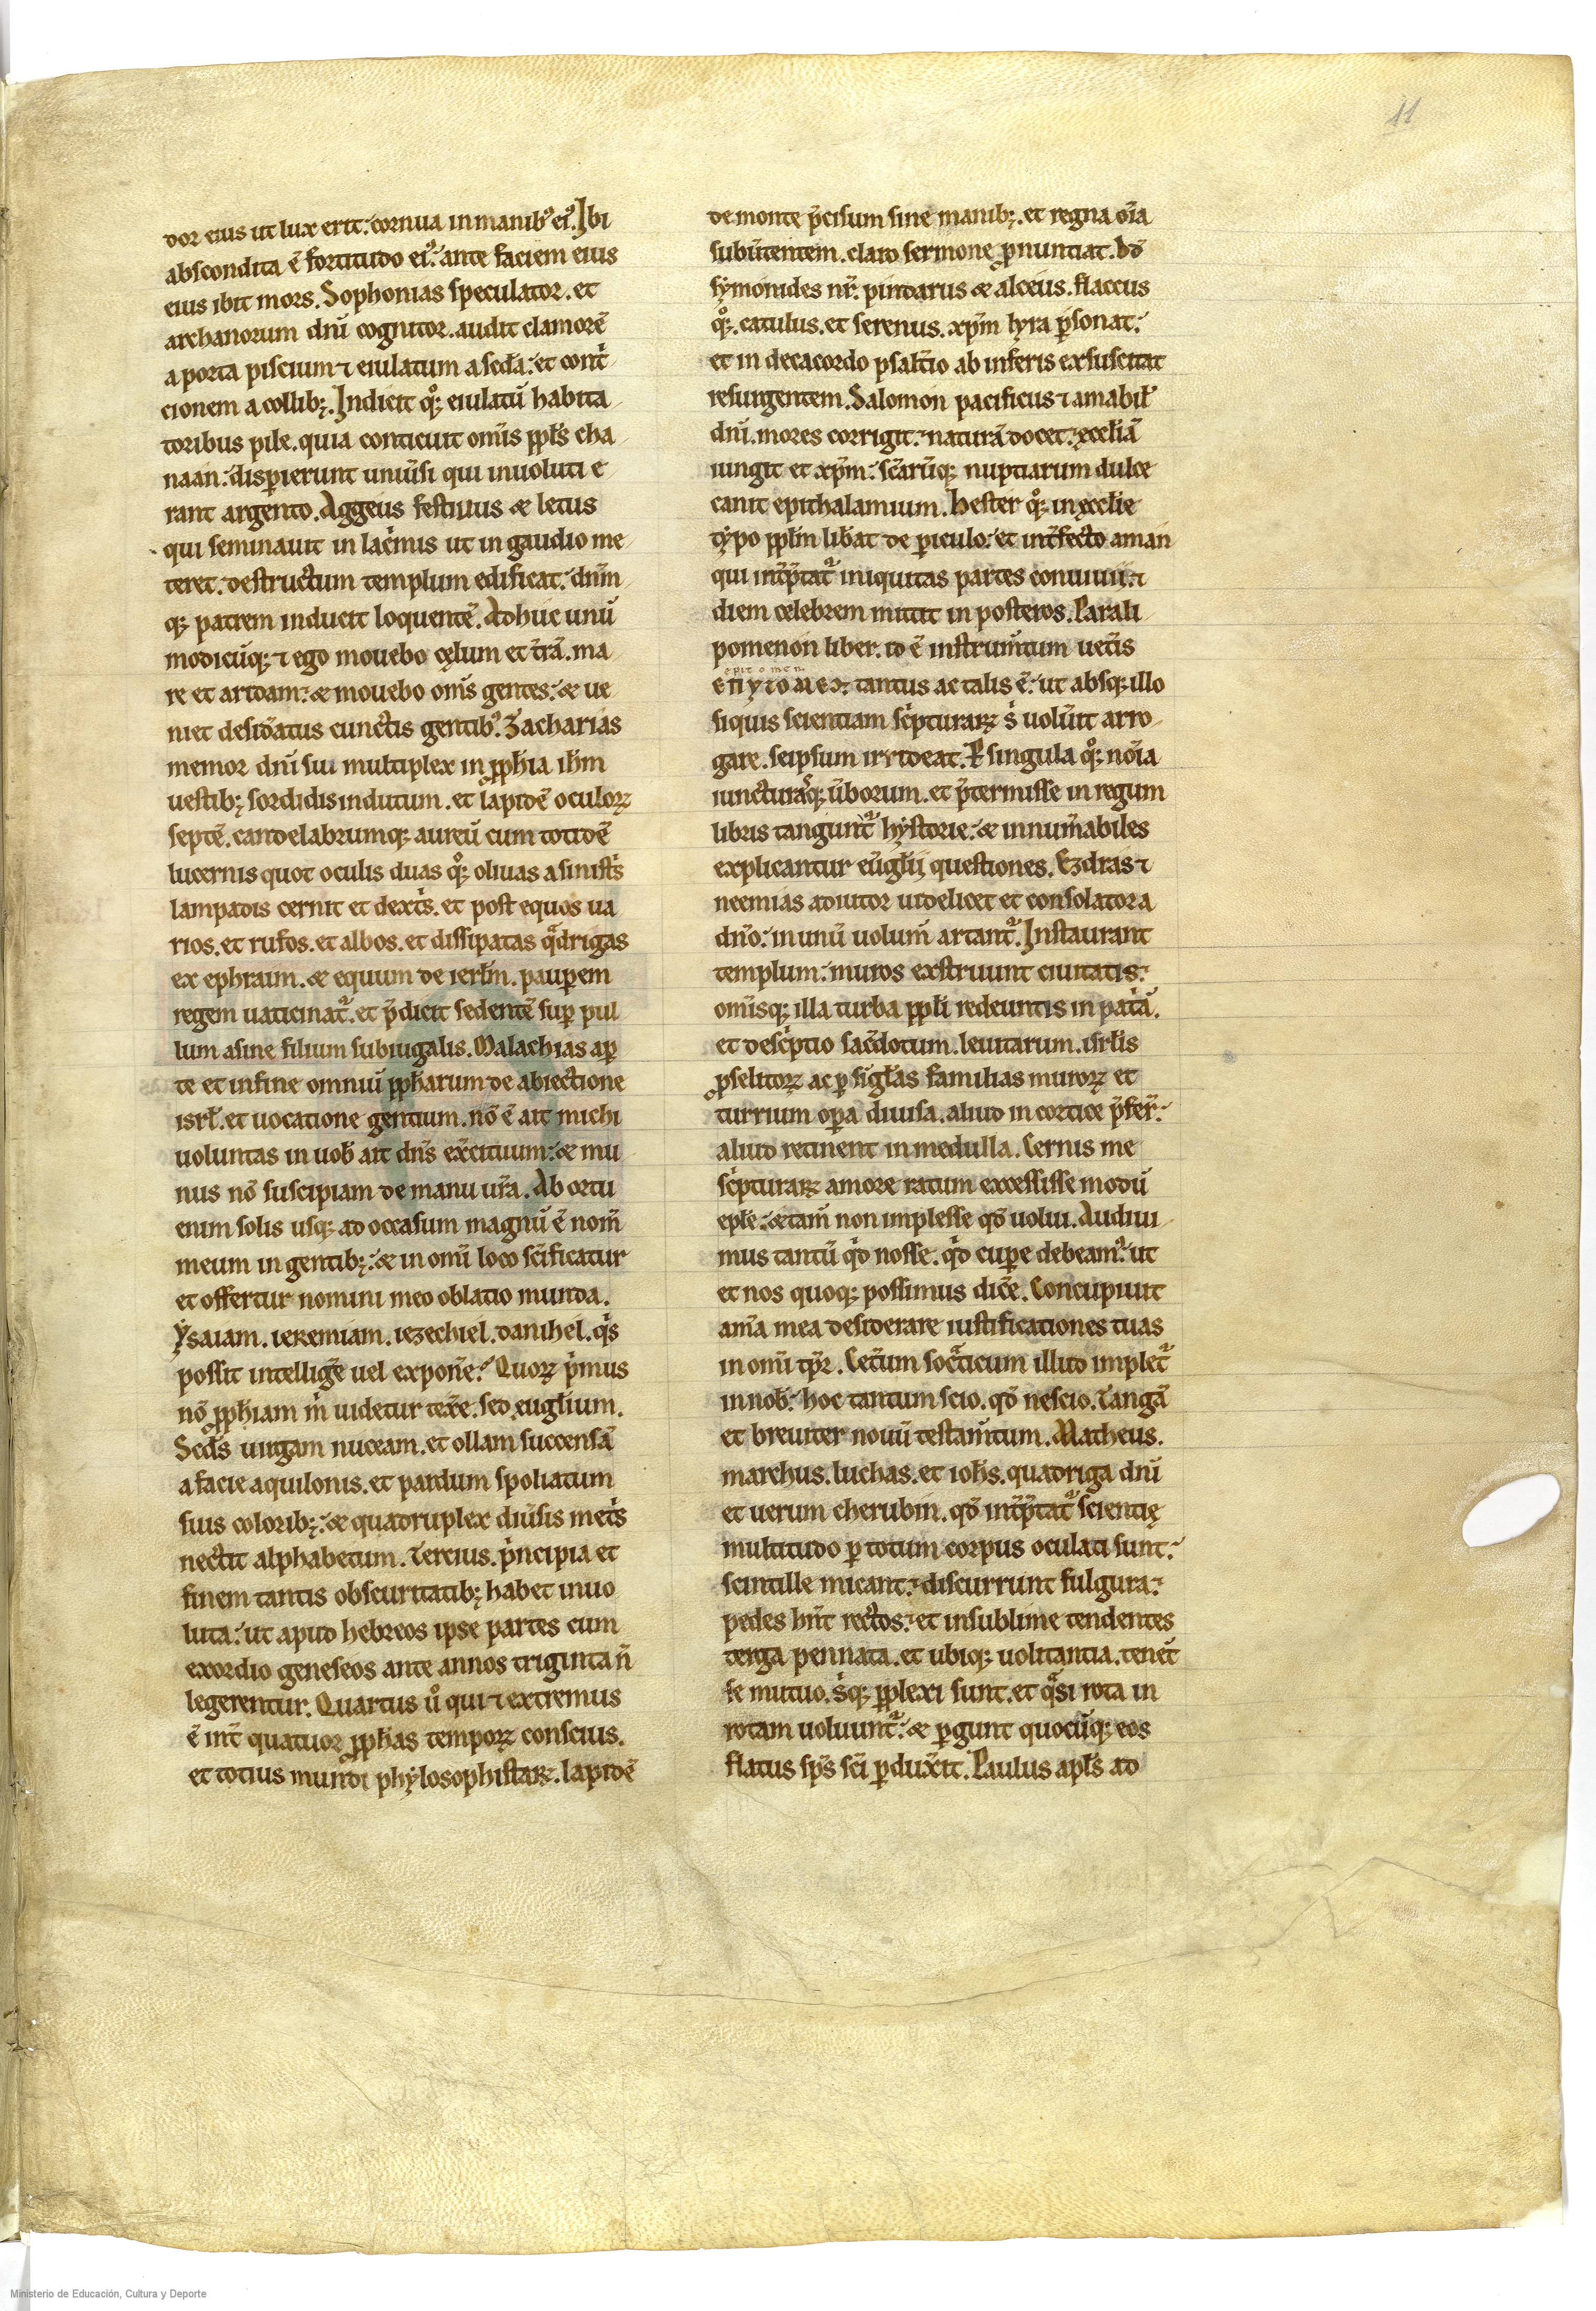 11
dor eius ut lux erit: cornua in manibꝰ eiꝰ. Ibi
abscondita ē fortitudo eiꝰ: ante faciem eius
eius ibit mors. Sophonias speculator. et
archanorum dnī cognitor. audit clamorē
a porta piscium ⁊ eiulatum a scda: et cont
cionem a collibꝫ. Indicit qͦꝫ eiulatū habita
toribus pile. quia conticuit omīs ppl̄s cha
naan: dispierunt uniūsi qui inuoluti e
rant argento. Aggeus festiuus & letus
qui seminauit in lacͥmis ut in gaudio me
teret. destructum templum edificat. dnm̄
qꝫ patrem inducit loquentē. Adhuc unū
modicūqꝫ ⁊ ego mouebo cęlum et trā. ma
re et aridam: & mouebo omīs gentes: & ue
niet desidatus cunctis gentibꝰ. Zacharias
memor dnī sui multiplex in pph̄ia ih̄m
uestibꝫ sordidis indutum. et lapidē oculoꝝ
septē. candelabrumqꝫ aureū cum totidē
lucernis quot oculis duas qͦꝫ oliuas a sinistͥs
lampadis cernit et dextͥs. et post equos ua
rios. et rufos. et albos. et dissipatas qͣdrigas
ex ephraim. & equum de ierl̄m. pauꝑem
regem uaticinat᷑. et p̄dicit sedentē suꝑ pul
lum asine filium subiugalis. Malachias aꝑ
te et in fine omniū pph̄arum de abiectione
isrl̄. et uocatione gentium. nō ē ait michi
uoluntas in uob̄ ait dn̄s exc̄ituum: & mu
nus nō suscipiam de manu ur̄a. Ab ortu
enim solis usqꝫ ad occasum magnū ē nom̄
meum in gentibꝫ: & in omī loco scīficatur
et offertur nomini meo oblatio munda.
Ysaiam. ieremiam. iezechiel. danihel. qͥs
possit intelligē uel exponē? Quoꝝ pͥmus
nō pph̄iam m̄ uidetur texē. sed eugl̄ium.
Scd̄s uirgam nuceam. et ollam succensā
a facie aquilonis. et pardum spoliatum
suis coloribꝫ: & quadruplex diūsis metͥs
nectit alphabetum. Tercius. pͥncipia et
finem tantis obscuritatibꝫ habet inuo
luta: ut apud hebreos ipse partes cum
exordio geneseos ante annos triginta n̄
legerentur. Quartus uͦ qui ⁊ extremus
ē int̄ quatuor pph̄as tempoꝝ conscius.
et totius mundi phylosophistaꝝ. lapidē
de monte p̄cisum sine manibꝫ. et regna oīa
subūtentem. claro sermone ꝓnuntiat. Dd̄
symonides nr̄. pindarus & alceus. flaccus
qͦꝫ. catulus. et serenus. xp̄m lyra ꝑsonat:
et in decacordo psalt̄io ab inferis exsuscitat
resurgentem. Salomon pacificus ⁊ amabil̄
dnī. mores corrigit: naturā docet: ęccl̄iā
iungit et xp̄m: scārūqꝫ nuptiarum dulce
canit epithalamium. Hester qͦꝫ in ęccl̄ie
typo ppl̄m lib̄at de ꝑiculo: et int̄fecto aman
qui int̄p̄tat᷑ iniquitas partes conuiuii. ⁊
diem celebrem mittit in posteros. Parali
pomenon liber. id ē instrum̄tum uet̄is
epitomen
tantus ac talis ē: ut absqꝫ illo
siquis scientiam scͥpturaꝝ sͥ uolūit arro
gare. seipsum irrideat. ꝑ singula qͦꝫ noīa
iuncturasqꝫ ūborum. et p̄termisse in regum
libris tangunt᷑ hystorie: & innum̄abiles
explicantur eūgl̄ij questiones. Ezdras ⁊
neemias adiutor uidelicet et consolator a
dnō: in unū uolum̄ artant᷑. Instaurant
templum: muros exstruunt ciuitatis:
omīsqꝫ illa turba ppl̄i redeuntis in patͥā.
et descͥptio sacēdotum. leuitarum. isrl̄is
ꝓselitoꝝ ac ꝑ sigl̄as familias muroꝝ et
turrium oꝑa diuisa. aliud in cortice p̄fer̄:
aliud retinent in medulla. Cernis me
scͥpturaꝝ amore raptum excessisse modū
epl̄e: & tam̄ non implesse qd̄ uolui. Audiui
mus tantū qͥd nosse. qͥd cuꝑe debeamꝰ: ut
et nos quoqꝫ possimus dicē. Concupiuit
anīa mea desiderare iustificationes tuas
in omī tp̄r. Cet̄um socͣticum illud implet᷑
in nob̄: hoc tantum scio. qd̄ nescio. Tangā
et breuiter nouū testam̄tum. Matheus.
marchus. luchas. et ioh̄s. quadriga dnī
et uerum cherubin. qd̄ int̄p̄tat᷑ scientię
multitudo ꝑ totum corpus oculati sunt:
scintille micant: discurrunt fulgura:
pedes hn̄t rectos: et in sublime tendentes
terga pennata. et ubiqꝫ uolitantia. tenēt
se mutuo. sͥqꝫ ꝑplexi sunt. et qͣsi rota in
rotam uoluunt᷑: & ꝑgunt quocūqꝫ eos
flatus sp̄s scī ꝑduxīt. Paulus apl̄s ad
Ministerio de Educación, Cultura y Deporte